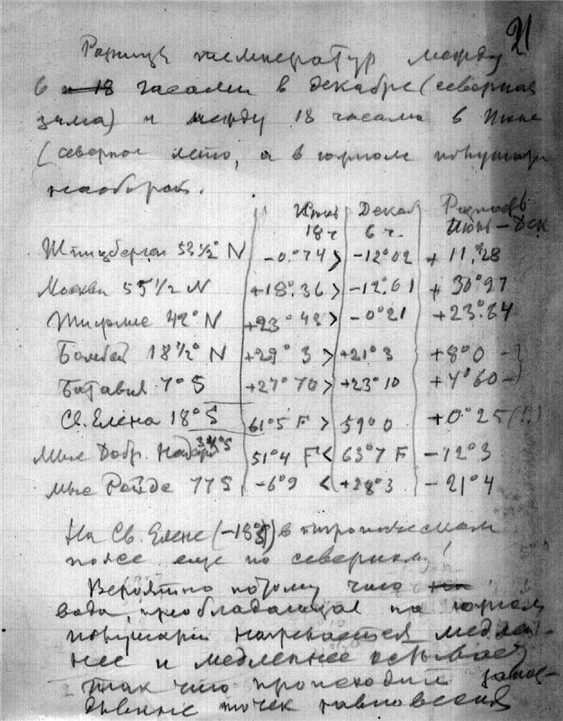 21
Разница температур между
6 и 18 часами в декабре (северная
зима) и между 18 часами в Июне
(северное лето, а в южном полушар
наоборот.
Июнь 18ч Декаб 6 ч. Разность Июнь – Дек
Шпицберген 53 1/2° N –0.°74 > –12°02 + 11,°28
Москва 55 1/2 N +18°.36 > –12°.61 + 30°97
Тифлис 42° N +23°43 > –0°21 +23°.64
Бомбей 18 1/2° N +29° 3 > +21°3 +8°0 –
Батавия 7° S +27°70 > +23°10 +4°60 –
Св. Елена 18° S 61°5 F > 59°0 +0°25 (!)
Мыс Добр. Надеж 34°S 51°4 F < 63°7 F –12°3
Мыс Ройдс 77 S –6°9 < +28°3 –21°4
На Св. Елене в тропическом
поясе еще по северному!
Вероятно потому что на
вода, преобладающая на южном
полушарии нагревается медлен-
нее и медленнее остывает
так что происходит запаз-
дывание точек равновесия